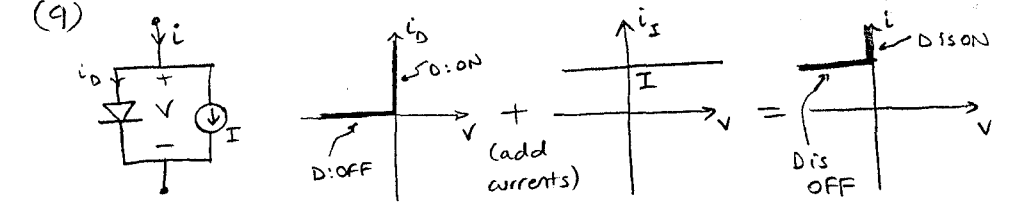 (9)
i
i_D
+
V
-
I
i_D
D:ON
V
D:OFF
+
(add
currents)
i_I
I
V
=
i
D is ON
V
D is
OFF